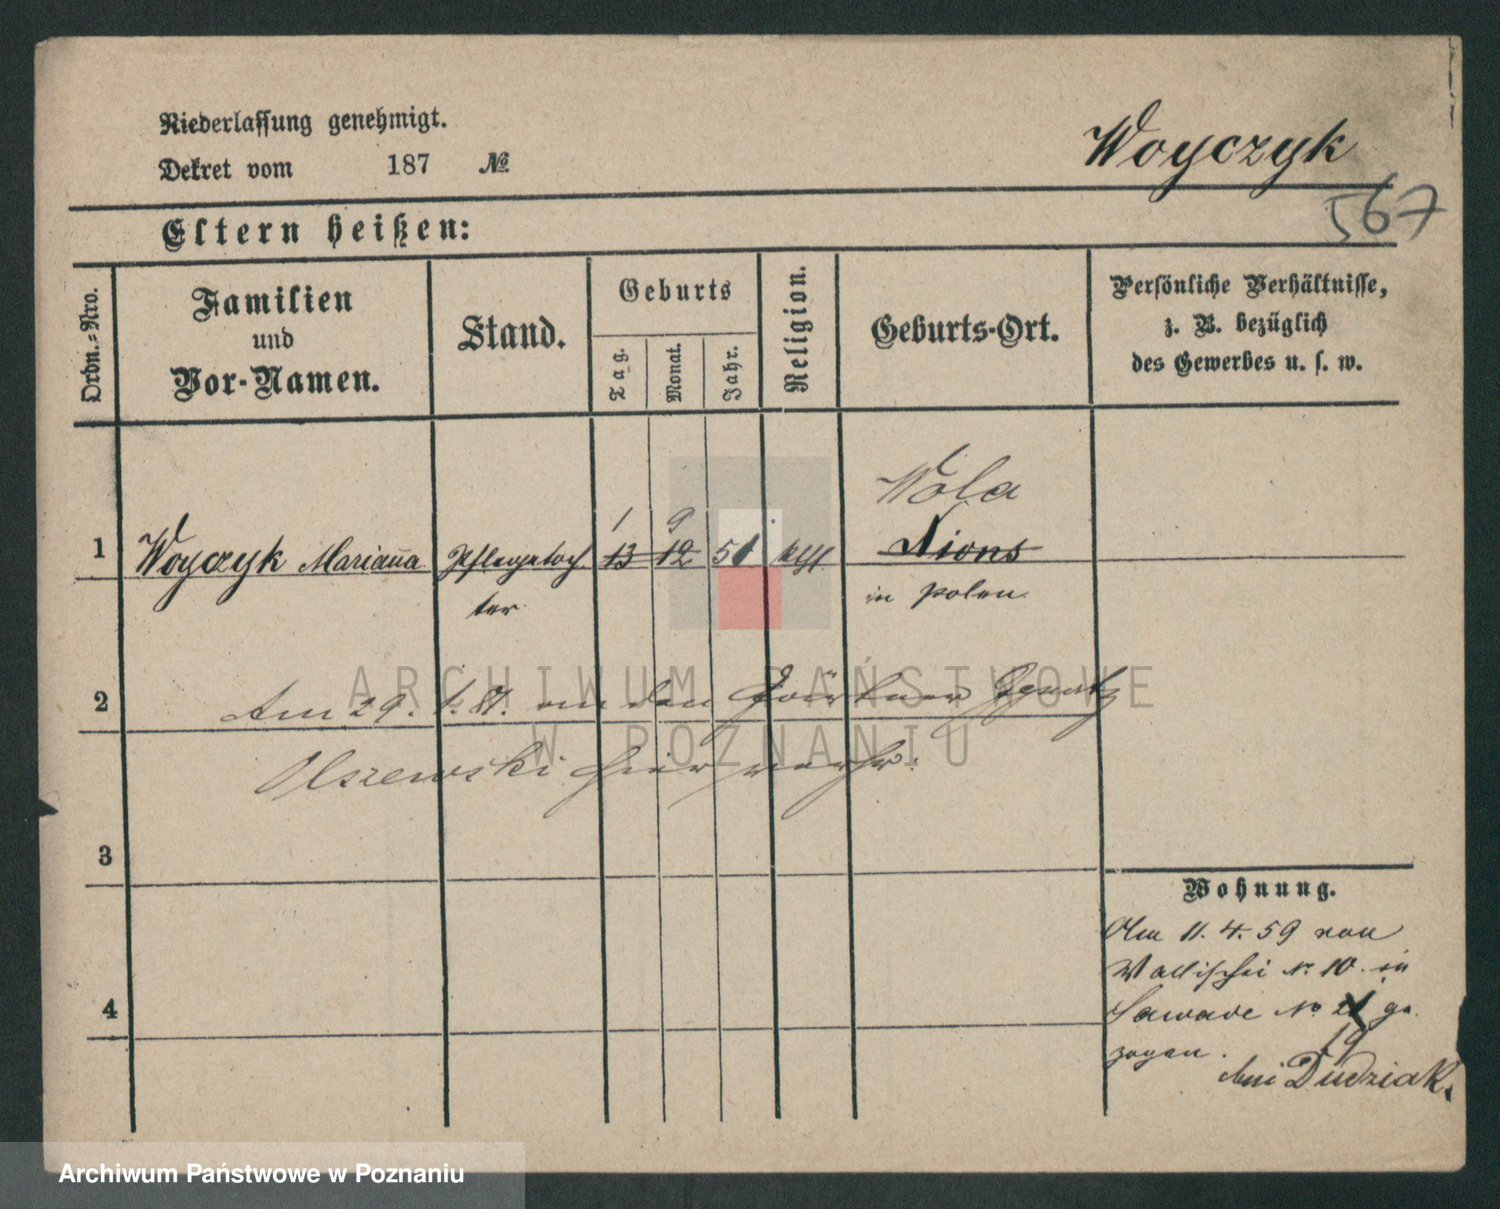 Niederlassung genehmigt.
Dekret vom 187 №
Woyczyk
567
Eltern heißen:
Ordn.-Nro.
Familien
und
Vor-Namen.
Stand.
Geburts
Tag.
Monat.
Jahr.
Religion.
Geburts-Ort.
Persönliche Verhältnisse,
z. B. bezüglich
des Gewerbes u. s. w.
Wola
1 9
1 Woyczyk Marianna Pflegetoch 13 12 51 kath. Xions
ter in Polen.
ARCHIWUM PAŃSTWOWE
2 Am 29. 1. 81. an den Gärtner Ignatz
W POZNANIU
Olszewski hier verh.
3
Wohnung.
Am 11. 4. 59 von
Wallischei No 10. in
4 Zawade No 21 ge
19
zogen.
bei Dudziak.
Archiwum Państwowe w Poznaniu